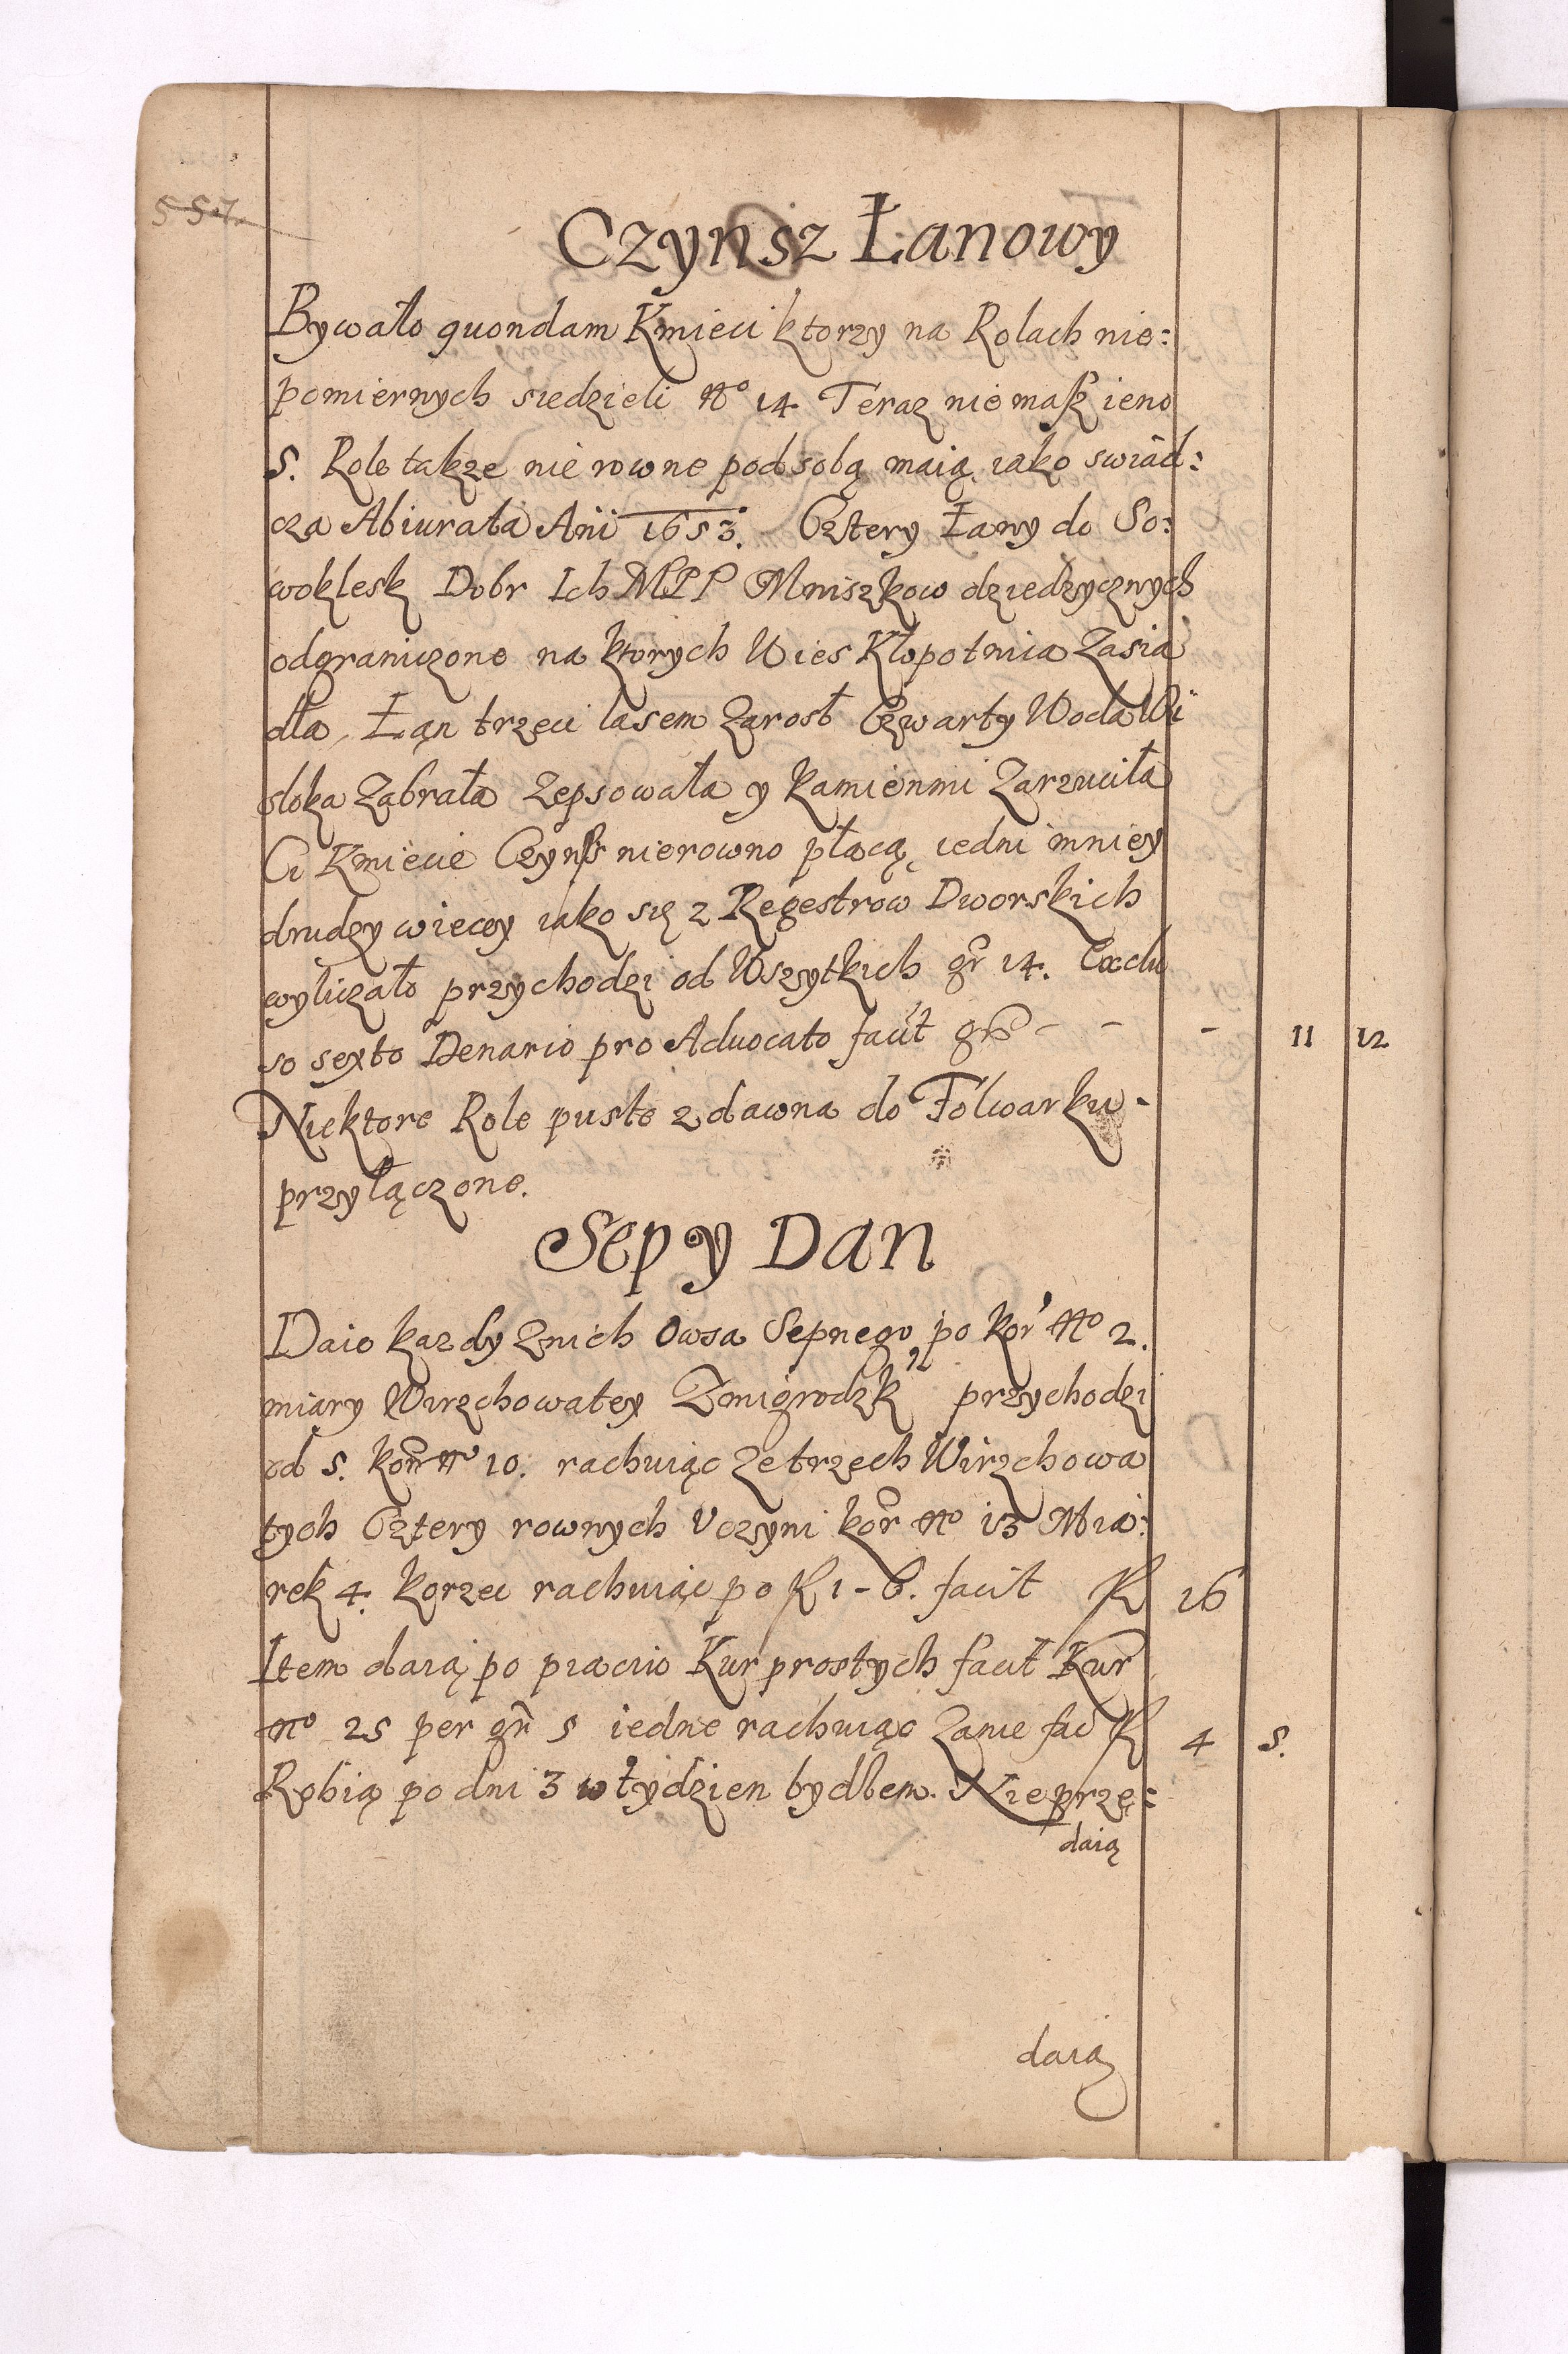 557.
Czynsz Łanowy
Bywało quondam Kmieci ktorzy na Rolach nie:
pomiernych siedzieli No 14 Teraz nie masz ieno
5. Role takze nie rowne pod sobą maią iako swiad:
cza Abiurata Anii 1653. Cztery Łany do So:
woklesk Dobr Ich MPP Mniszkow dziedzycznych
odgraniczone na ktorych Wies Kłopotnica Zasia
dła, Łan trzeci lasem Zarosł Czwarty Woda Wi
sloka Zabrała Zepsowała y kamienmi Zarzuciła
Ci Kmiecie Czynsz nierowno płacą, iedni mniey
drudzy wiecey iako się z Regestrow Dworskich
wyliczało przychodzi od Wszytkich gr 14. Exclu
so sexto Denario pro Advocato facit gr - - - 11 12
Niektore Role puste z dawna do Folwarku -
przyłączone.
Sepy Dan
Daie kazdy Znich Owsa Sepnego po kor No 2.
miary Wirzchowatey Zmigrodzk przychodzi
od 5. kor No 10. rachuiąc Ze trzech Wirzchowa
tych Cztery rownych Uczyni kor No 13 Mia:
rek 4. korzec rachuiąc po fl 1 - 6. facit fl 16
Item daią po piacio Kur prostych facit Kur
No 25 per gr 5 iedne rachuiąc Zanie fac fl 4 5.
Robią po dni 3 w tydzien bydłem. Nie przę:
daią
daią